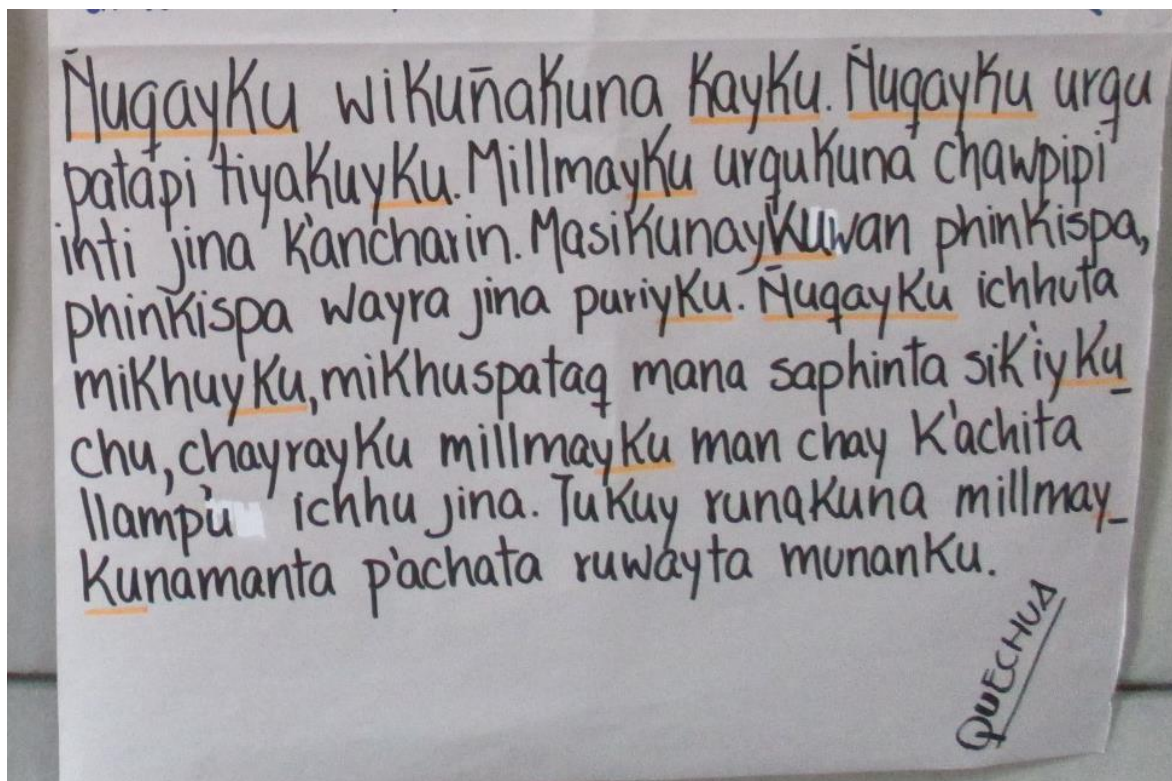 Ñuqayku wikuñakuna kayku. Ñuqayku urqu
patapi tiyakuyku. Millmayku urqukuna chawpipi
inti jina k'ancharin. Masikunaykuwan phinkispa,
phinkispa wayra jina puriyku. Ñuqayku ichhuta
mikhuyku, mikhuspataq mana saphinta sik'iyku_
chu, chayrayku millmayku man chay k'achita
llamp'u ichhu jina. Tukuy runakuna millmay_
kunamanta p'achata ruwayta munanku.
QUECHUA